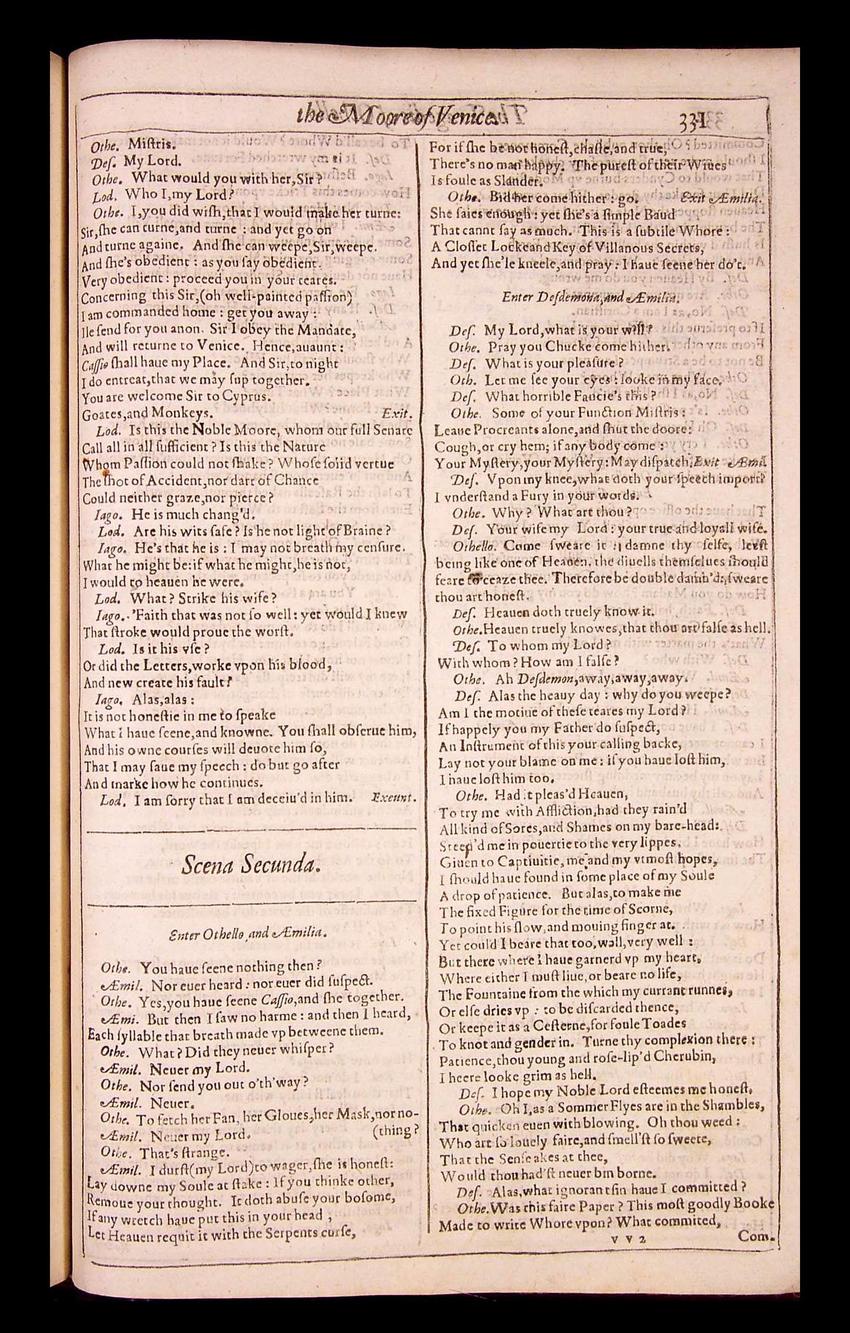 the Moore of Venice. 331
Othe. Miſtris.
Deſ. My Lord.
Othe. What would you with her, Sir?
Lod. Who I, my Lord?
Othe. I, you did wiſh, that I would make her turne:
Sir, ſhe can turne, and turne : and yet go on
And turne againe. And ſhe can weepe, Sir, weepe.
And ſhe's obedient : as you ſay obedient.
Very obedient : proceed you in your teares.
Concerning this Sir, (oh well-painted paſſion)
I am commanded home : get you away :
Ile ſend for you anon. Sir I obey the Mandate,
And will returne to Venice. Hence, auaunt :
Caſſio ſhall haue my Place. And Sir, to night
I do entreat, that we may ſup together.
You are welcome Sir to Cyprus.
Goates, and Monkeys. Exit.
Lod. Is this the Noble Moore, whom our full Senate
Call all in all ſufficient? Is this the Nature
Whom Paſſion could not ſhake? Whoſe ſolid vertue
The ſhot of Accident, nor dart of Chance
Could neither graze, nor pierce?
Iago. He is much chang'd.
Lod. Are his wits ſafe? Is he not light of Braine?
Iago. He's that he is : I may not breath my cenſure.
What he might be: if what he might, he is not,
I would to heauen he were.
Lod. What? Strike his wife?
Iago. 'Faith that was not ſo well : yet would I knew
That ſtroke would proue the worſt.
Lod. Is it his vſe?
Or did the Letters, worke vpon his blood,
And new create his fault?
Iago. Alas, alas :
It is not honeſtie in me to ſpeake
What I haue ſeene, and knowne. You ſhall obſerue him,
And his owne courſes will deuote him ſo,
That I may ſaue my ſpeech : do but go after
And marke how he continues.
Lod. I am ſorry that I am deceiu'd in him. Exeunt.
Scena Secunda.
Enter Othello, and Æmilia.
Othe. You haue ſeene nothing then?
Æmil. Nor euer heard : nor euer did ſuſpect.
Othe. Yes, you haue ſeene Caſſio, and ſhe together.
Æmi. But then I ſaw no harme : and then I heard,
Each ſyllable that breath made vp betweene them.
Othe. What? Did they neuer whiſper?
Æmil. Neuer my Lord.
Othe. Nor ſend you out o'th'way?
Æmil. Neuer.
Othe. To fetch her Fan, her Gloues, her Mask, nor no-
Æmil. Neuer my Lord. (thing?
Othe. That's ſtrange.
Æmil. I durſt (my Lord) to wager, ſhe is honeſt:
Lay downe my Soule at ſtake : If you thinke other,
Remoue your thought. It doth abuſe your boſome,
If any wretch haue put this in your head ,
Let Heauen requit it with the Serpents curſe,
For if ſhe be not honeſt, chaſte, and true,
There's no man happy. The pureſt of their Wiues
Is foule as Slander.
Othe. Bid her come hither : go. Exit Æmilia.
She ſaies enough : yet ſhe's a ſimple Baud
That cannt ſay as much. This is a ſubtile Whore :
A Cloſſet Locke and Key of Villanous Secrets,
And yet ſhe'le kneele, and pray : I haue ſeene her do't.
Enter Deſdemona, and Æmilia.
Deſ. My Lord, what is your will?
Othe. Pray you Chucke come hither.
Deſ. What is your pleaſure?
Oth. Let me ſee your eyes : looke in my face.
Deſ. What horrible Fancie's this?
Othe. Some of your Function Miſtris :
Leaue Procreants alone, and ſhut the doore:
Cough, or cry hem; if any body come :
Your Myſtery, your Myſtery : May diſpatch. Exit Æmi.
Deſ. Vpon my knee, what doth your ſpeech import?
I vnderſtand a Fury in your words.
Othe. Why? What art thou?
Deſ. Your wife my Lord : your true and loyall wife.
Othello. Come ſweare it : damne thy ſelfe, leaſt
being like one of Heauen, the diuells themſelues ſhould
feare to ceaze thee. Therefore be double damn'd: ſweare
thou art honeſt.
Deſ. Heauen doth truely know it.
Othe. Heauen truely knowes, that thou art falſe as hell.
Deſ. To whom my Lord?
With whom? How am I falſe?
Othe. Ah Deſdemon, away, away, away.
Deſ. Alas the heauy day : why do you weepe?
Am I the motiue of theſe teares my Lord?
If happely you my Father do ſuſpect,
An Inſtrument of this your calling backe,
Lay not your blame on me : if you haue loſt him,
I haue loſt him too.
Othe. Had it pleas'd Heauen,
To try me with Affliction, had they rain'd
All kind of Sores, and Shames on my bare-head:
Steep'd me in pouertie to the very lippes,
Giuen to Captiuitie, me, and my vtmoſt hopes,
I ſhould haue found in ſome place of my Soule
A drop of patience. But alas, to make me
The fixed Figure for the time of Scorne,
To point his ſlow, and mouing finger at.
Yet could I beare that too, well, very well :
But there where I haue garnerd vp my heart,
Where either I muſt liue, or beare no life,
The Fountaine from the which my currant runnes,
Or elſe dries vp : to be diſcarded thence,
Or keepe it as a Ceſterne, for foule Toades
To knot and gender in. Turne thy complexion there :
Patience, thou young and roſe-lip'd Cherubin,
I heere looke grim as hell.
Deſ. I hope my Noble Lord eſteemes me honeſt,
Othe. Oh I, as a Sommer Flyes are in the Shambles,
That quicken euen with blowing. Oh thou weed :
Who art ſo louely faire, and ſmell'ſt ſo ſweete,
That the Senſe akes at thee,
Would thou had'ſt neuer bin borne.
Deſ. Alas, what ignorant ſin haue I committed?
Othe. Was this faire Paper? This moſt goodly Booke
Made to write Whore vpon? What commited,
v v 2 Com.